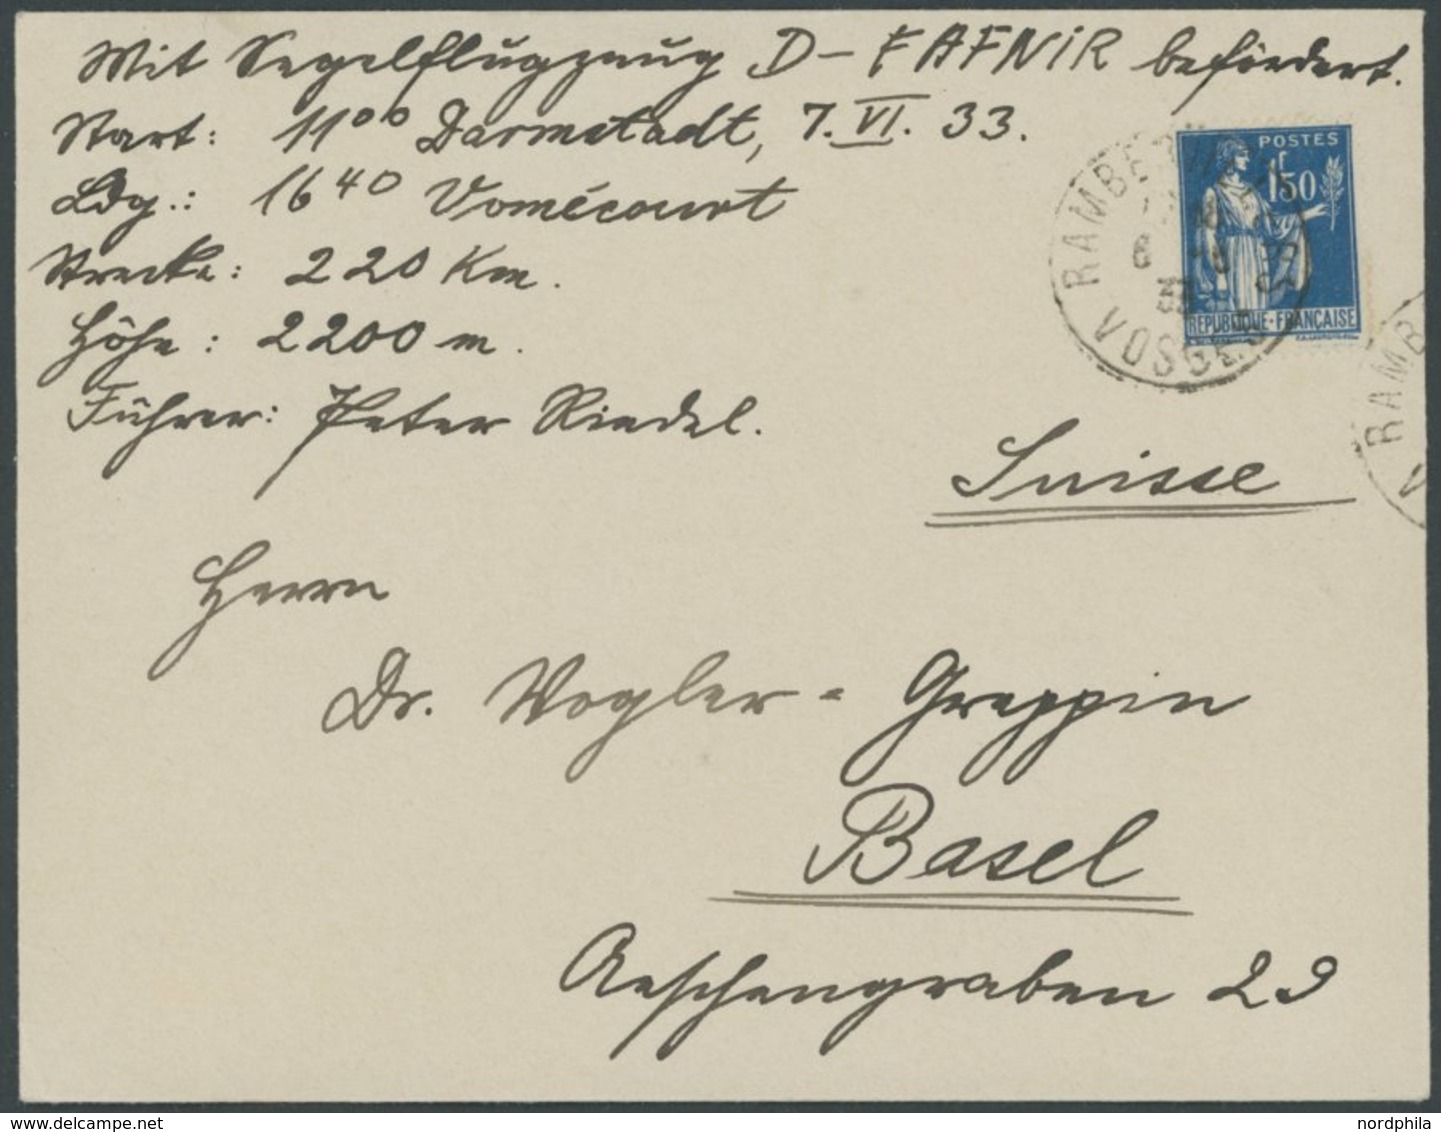 Mit Segelflugzeug D-FAFNiR befördert.
Start: 11⁰⁰ Darmstadt, 7.VI.33.
Ldg.: 16⁴⁰ Vomécourt
Strecke: 220 Km.
Höhe: 2200 m.
Führer: Peter Riedel.
POSTES
1F50
REPUBLIQUE-FRANÇAISE
VOSGES
RAMB
V
Suisse
Herrn
Dr. Vogler-Greppin
Basel
Aeschengraben 29
nordphila